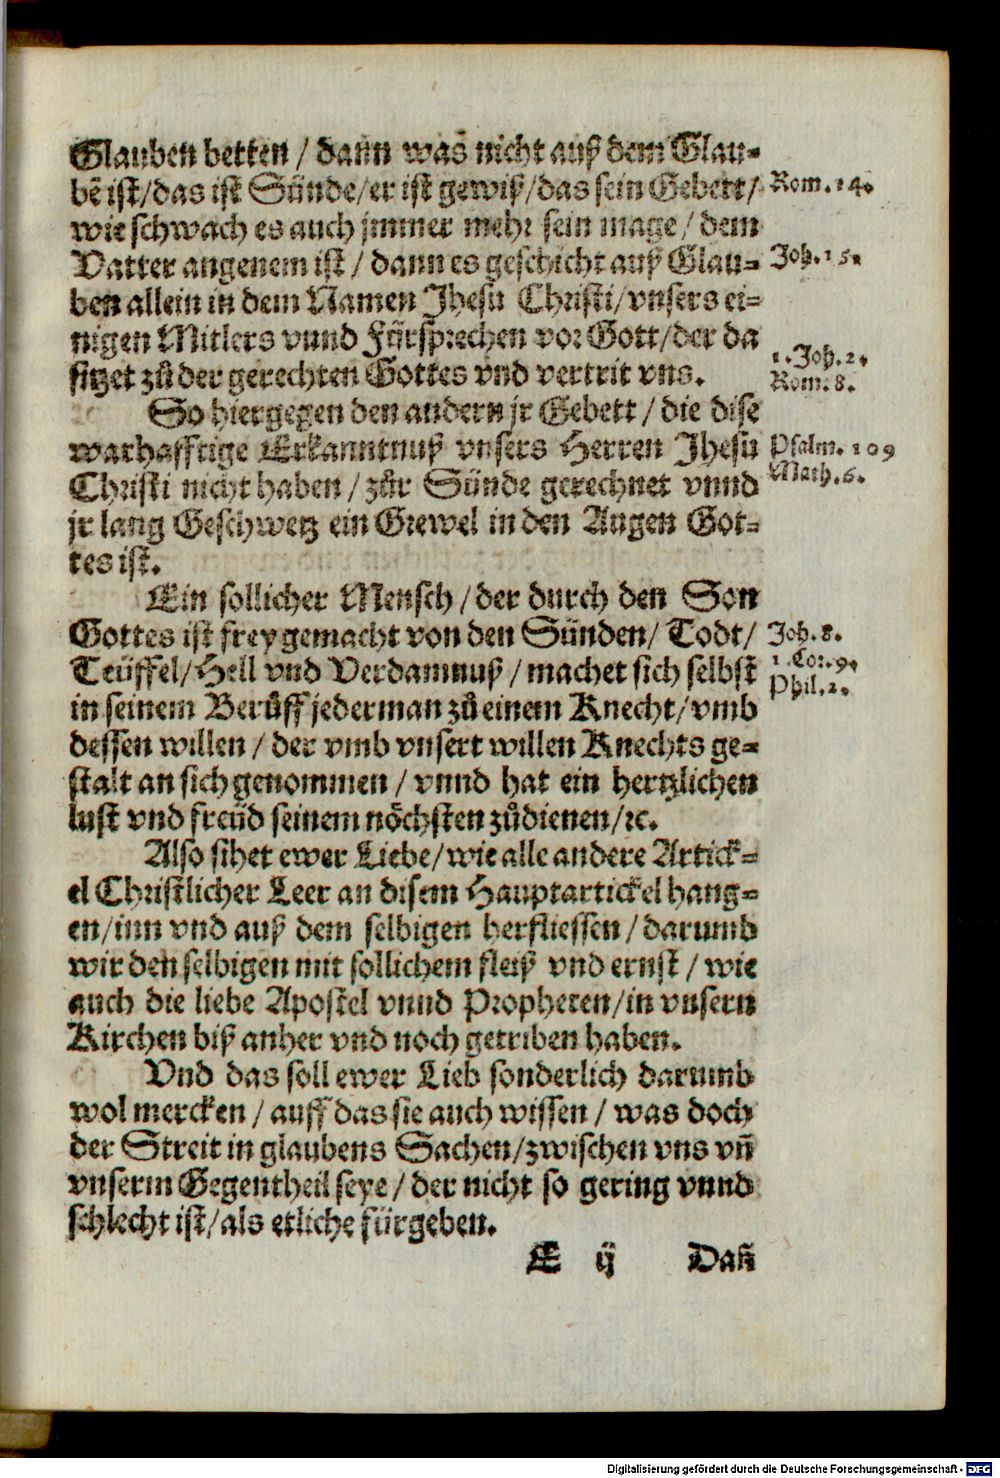 Glauben betten / dann was nicht auß dem Glau-
bē ist/das ist Sünde/er ist gewiß/das sein Gebett/
Rom. 14.
wie schwach es auch jmmer mehr sein mage / dem
Vatter angenem ist / dann es geschicht auß Glau-
Joh. 15.
ben allein in dem Namen Jhesu Christi/vnsers ei-
nigen Mitlers vnnd Fürsprechen vor Gott/der da
1. Joh. 2.
sitzet zů der gerechten Gottes vnd vertrit vns.
Rom. 8.
So hiergegen den andern jr Gebett / die dise
warhafftige Erkanntnuß vnsers Herren Jhesu
Psalm. 109
Christi nicht haben / zůr Sünde gerechnet vnnd
Math. 6.
jr lang Geschwetz ein Grewel in den Augen Got-
tes ist.
Ein sollicher Mensch / der durch den Son
Gottes ist frey gemacht von den Sünden/ Todt/
Joh. 8.
Teüffel/Hell vnd Verdamnuß / machet sich selbst
1. Cor. 9.
in seinem Berůff jederman zů einem Knecht/vmb
Phil. 2.
dessen willen / der vmb vnsert willen Knechts ge-
stalt an sich genommen / vnnd hat ein hertzlichen
lust vnd freüd seinem nöchsten zůdienen/ꝛc.
Also sihet ewer Liebe/wie alle andere Artick-
el Christlicher Leer an disem Hauptartickel hang-
en/inn vnd auß dem selbigen herfliessen / darumb
wir den selbigen mit sollichem fleiß vnd ernst / wie
auch die liebe Apostel vnnd Propheten/in vnsern
Kirchen biß anher vnd noch getriben haben.
Vnd das soll ewer Lieb sonderlich darumb
wol mercken / auff das sie auch wissen / was doch
der Streit in glaubens Sachen/zwischen vns vn̄
vnserm Gegentheil seye / der nicht so gering vnnd
schlecht ist/als etliche fürgeben.
E ij Dañ
Digitalisierung gefördert durch die Deutsche Forschungsgemeinschaft - DFG